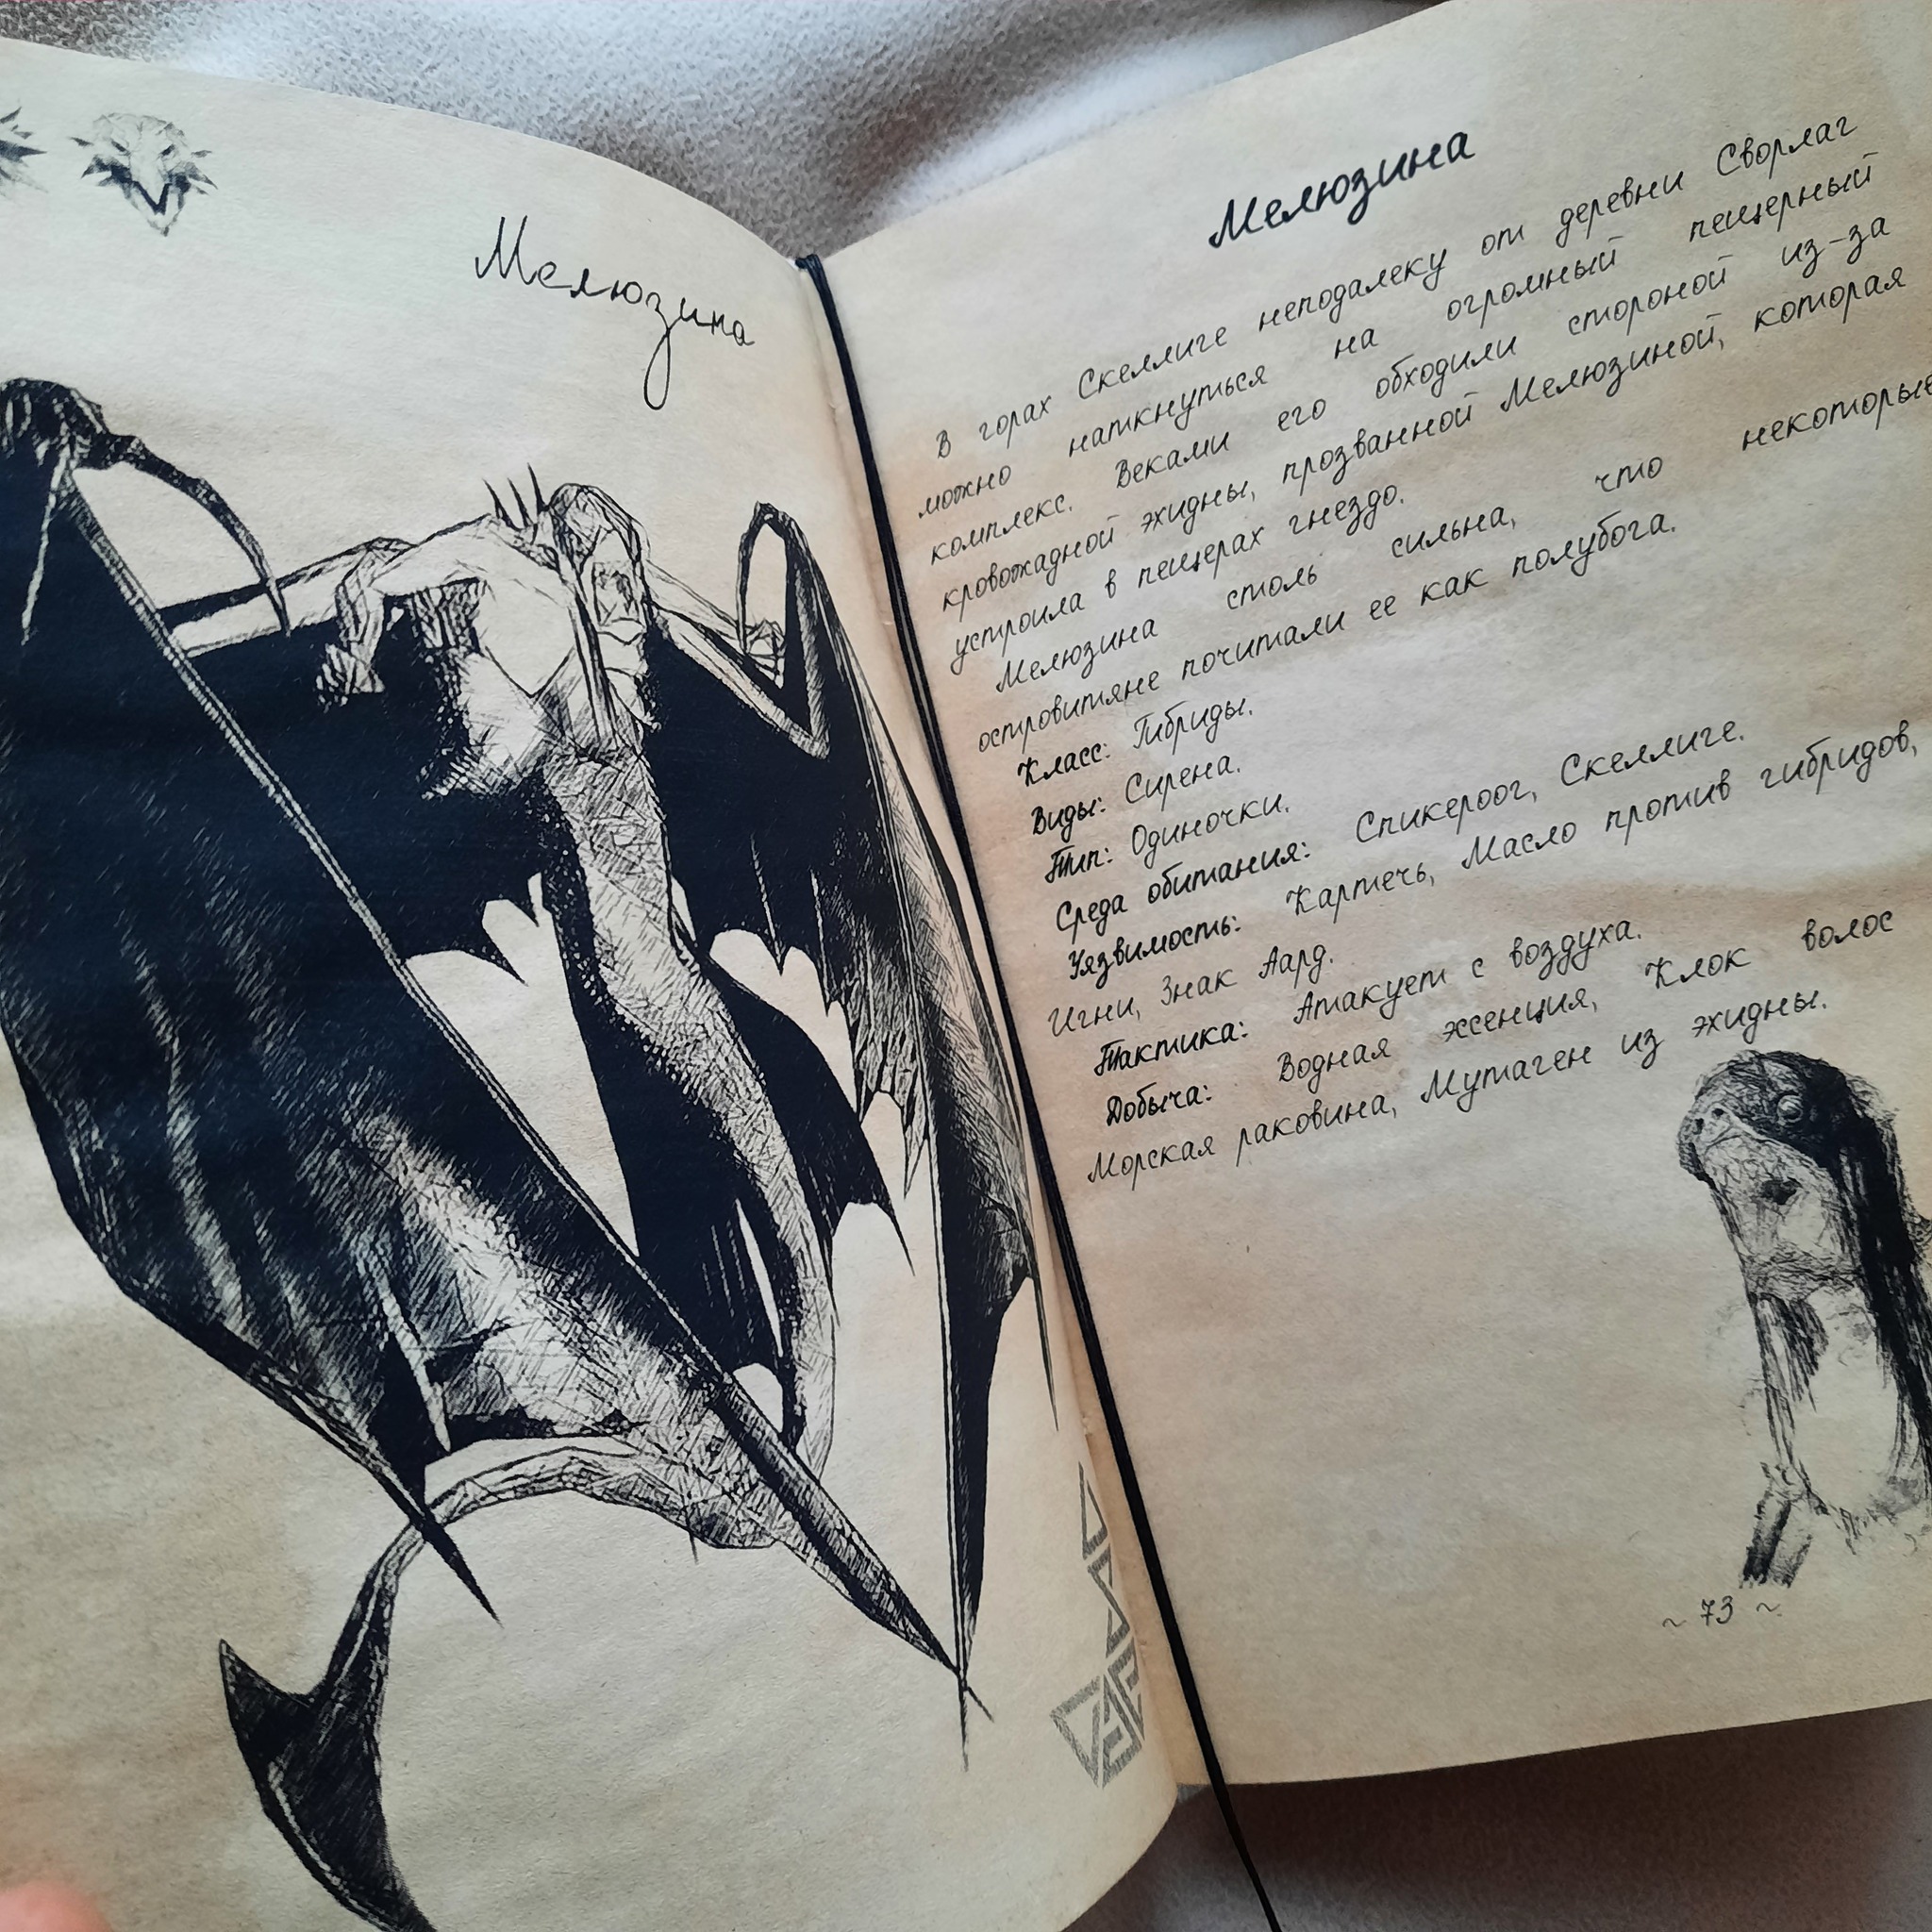 Мелюзина
Мелюзина
В горах Скеллиге неподалеку от деревни Сворлаг
можно наткнуться на огромный пещерный
комплекс. Веками его обходили стороной из-за
кровожадной эхидны, прозванной Мелюзиной, которая
устроила в пещерах гнездо.
Мелюзина столь сильна, что некоторые
островитяне почитали ее как полубога.
Класс: Гибриды.
Виды: Сирена.
Тип: Одиночки.
Среда обитания: Спикероог, Скеллиге.
Уязвимость: Картечь, Масло против гибридов,
Игни, Знак Аард.
Тактика: Атакует с воздуха.
Добыча: Водная эссенция, Клок волос
Морская раковина, Мутаген из эхидны.
~ 73 ~